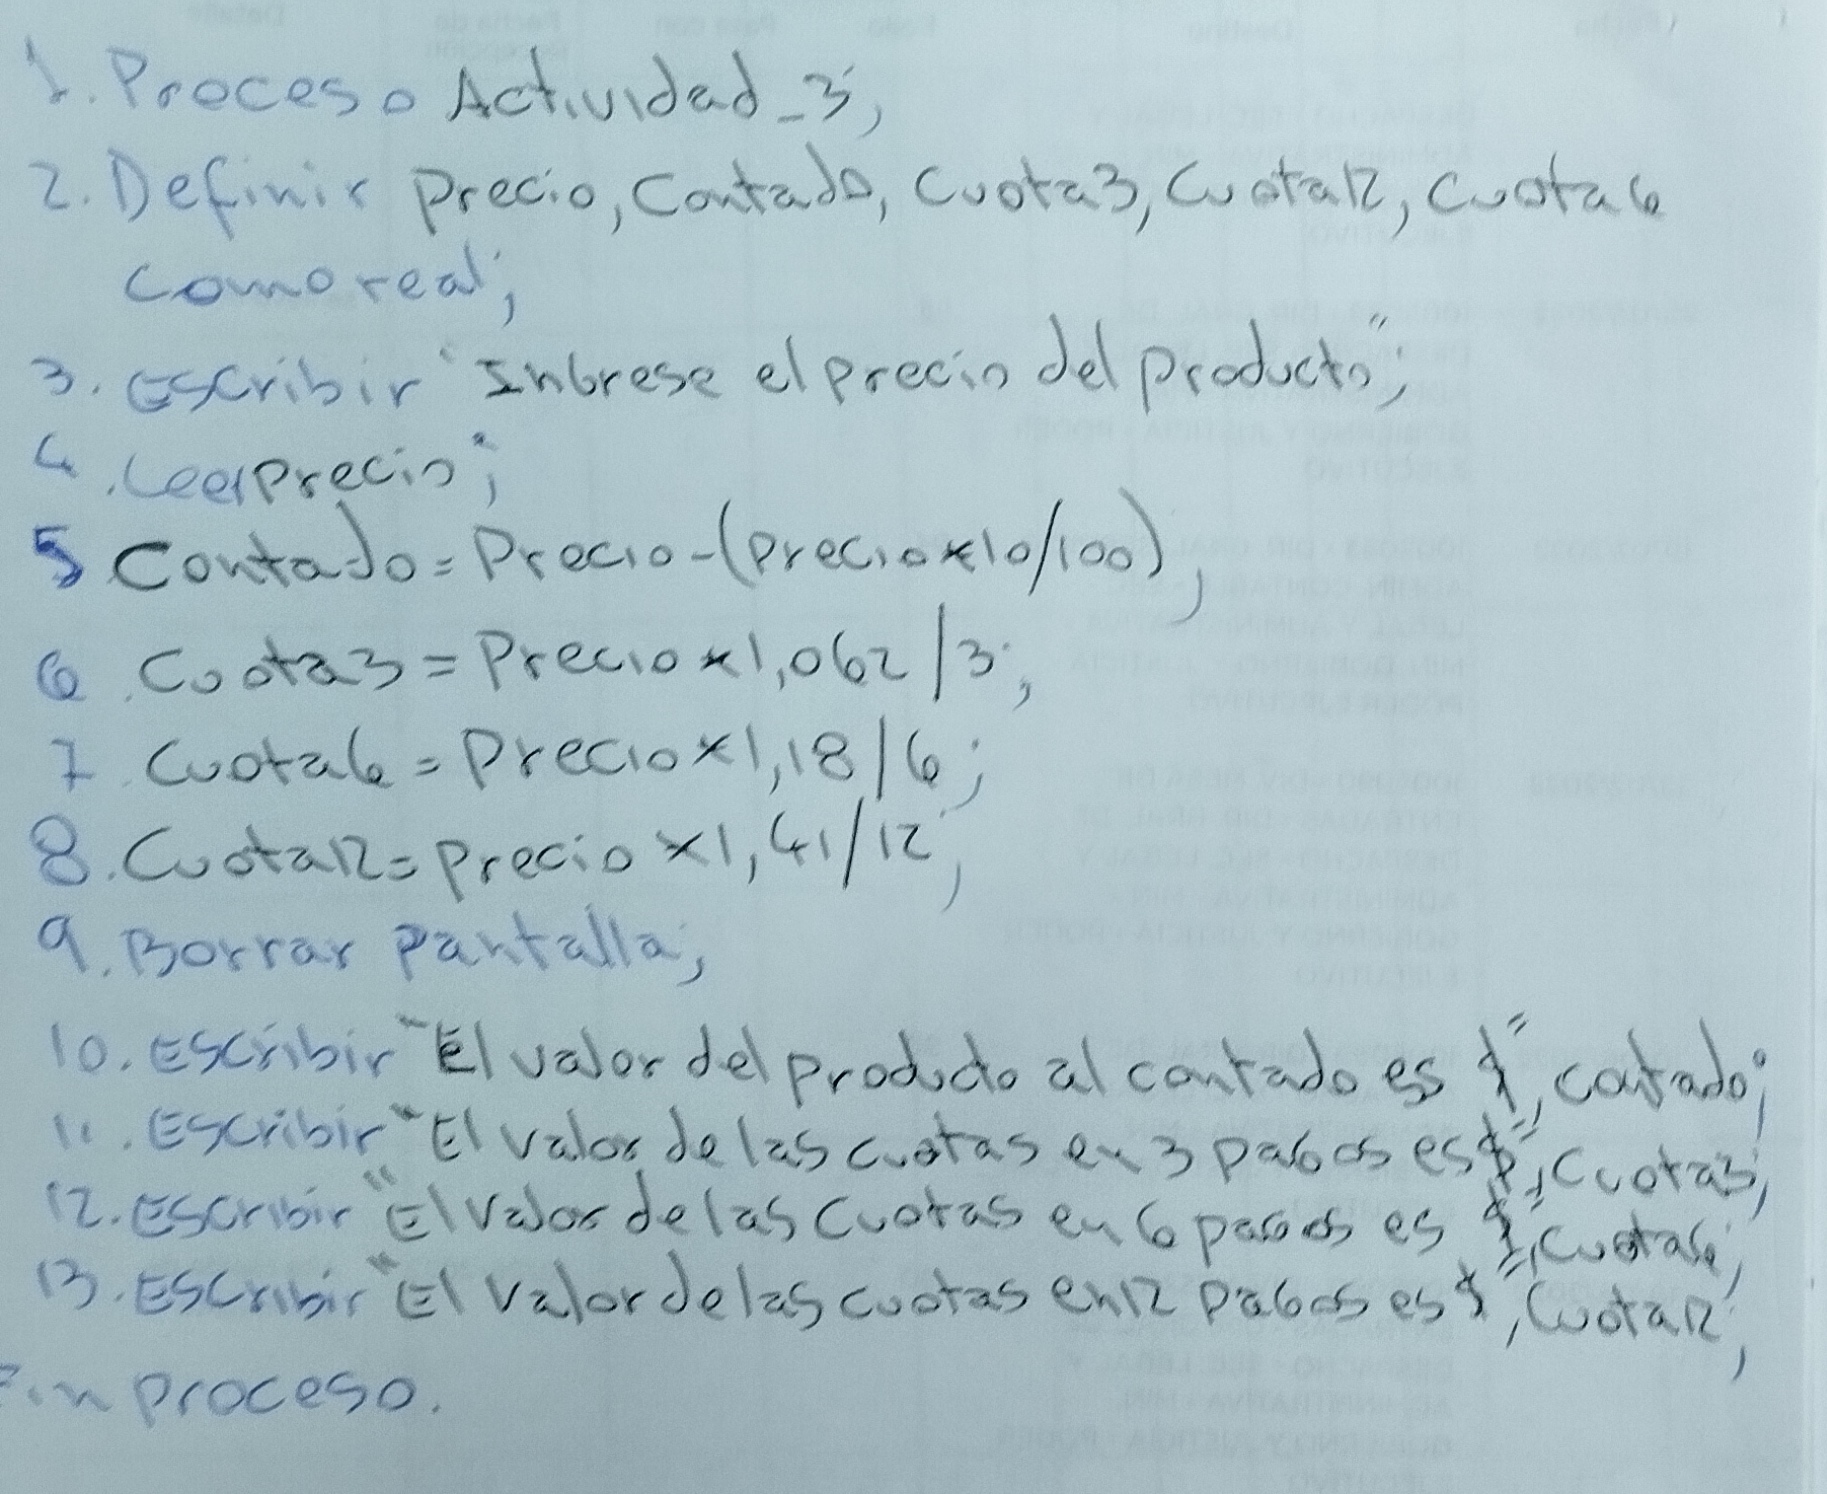 1. Proceso Actividad_3;
2. Definir precio, Contado, Cuota3, Cuota12, Cuota6
como real;
3. Escribir "Ingrese el precio del producto";
4. Leer Precio;
5 Contado = Precio - (Precio x 10/100);
6. Cuota3 = Precio x 1,062 / 3;
7. Cuota6 = Precio x 1,18 / 6;
8. Cuota12 = precio x 1,41/12;
9. Borrar pantalla;
10. Escribir "El valor del producto al contado es $", contado;
11. Escribir "El valor de las cuotas en 3 pagos es $", Cuota3;
12. Escribir "El valor de las cuotas en 6 pagos es $", Cuota6;
13. Escribir "El valor de las cuotas en 12 pagos es $", Cuota12;
Fin proceso.